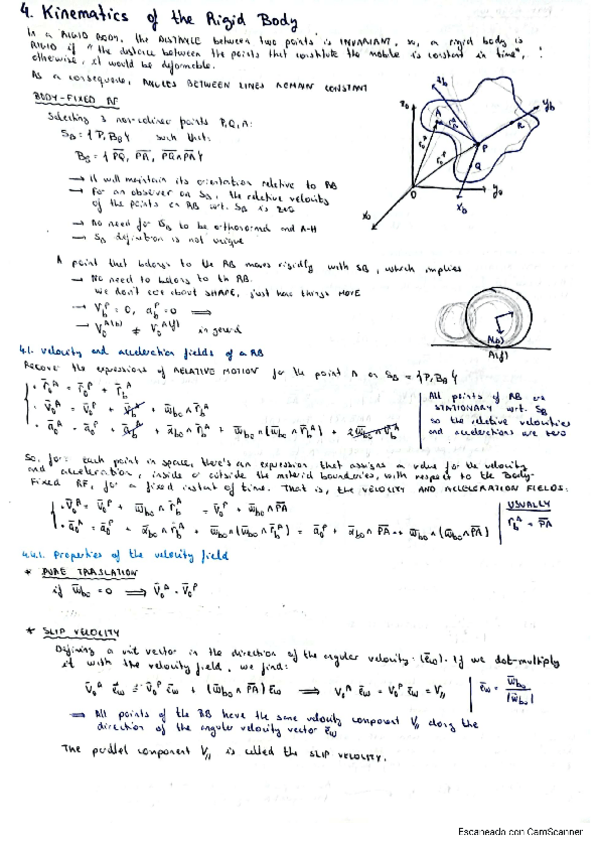 4. Kinematics of the Rigid Body
In a RIGID BODY, the DISTANCE between two points is INVARIANT, so, a rigid body is
RIGID if "the distance between the points that constitute the mobile is constant in time",
otherwise, it would be deformable.
As a consequence, ANGLES BETWEEN LINES REMAIN CONSTANT
BODY-FIXED RF
Selecting 3 non-colinear points P,Q,R:
S_B = {P, B_B} such that:
B_B = {PQ, PR, PQ∧PR}
→ It will maintain its orientation relative to RB
→ For an observer on S_B, the relative velocity
of the points on RB wrt. S_B is zero
→ No need for B_B to be orthonormal and R-H
→ S_B definition is not unique
z_0
z_b
y_b
A
P
R
Q
O
y_0
x_b
x_0
A point that belongs to the RB moves rigidly with SB, which implies
→ No need to belong to the RB.
We don't care about SHAPE, just how things MOVE
→ V_b^P = 0, a_b^P = 0 ⟹
→ V_0^A(b) ≠ V_0^A(f) in general
A(b)
A(f)
4.1. Velocity and acceleration fields of a RB
Recover the expressions of RELATIVE MOTION for the point A on S_B = {P, B_B}
• r̄_0^A = r̄_0^P + r̄_b^A
• v̄_0^A = v̄_0^P + v̄_b^A + ω̄_b0 ∧ r̄_b^A
• ā_0^A = ā_0^P + ā_b^A + ᾱ_b0 ∧ r̄_b^A + ω̄_b0 ∧ (ω̄_b0 ∧ r̄_b^A) + 2ω̄_b0 ∧ v̄_b^A
All points of RB are
STATIONARY wrt. S_B
so the relative velocities
and accelerations are zero
So, for each point in space, there's an expression that assigns a value for the velocity
and acceleration, inside or outside the material boundaries, with respect to the Body-
Fixed RF, for a fixed instant of time. That is, the VELOCITY AND ACCELERATION FIELDS:
• v̄_0^A = v̄_0^P + ω̄_b0 ∧ r̄_b^A = v̄_0^P + ω̄_b0 ∧ PA
• ā_0^A = ā_0^P + ᾱ_b0 ∧ r̄_b^A + ω̄_b0 ∧ (ω̄_b0 ∧ r̄_b^A) = ā_0^P + ᾱ_b0 ∧ PA + ω̄_b0 ∧ (ω̄_b0 ∧ PA)
USUALLY
r̄_b^A = PA
4.1.1. Properties of the velocity field
* PURE TRASLATION
if ω̄_b0 = 0 ⟹ v̄_0^A = v̄_0^P
* SLIP VELOCITY
Defining a unit vector in the direction of the angular velocity: (ē_ω). If we dot-multiply
it with the velocity field, we find:
v̄_0^A ē_ω = v̄_0^P ē_ω + (ω̄_b0 ∧ PA) ē_ω ⟹ v_0^A ē_ω = v_0^P ē_ω = V_//
ē_ω = ω̄_b0 / |ω̄_b0|
⟹ All points of the RB have the same velocity component V_// along the
direction of the angular velocity vector ē_ω
The parallel component V_// is called the SLIP VELOCITY.
Escaneado con CamScanner